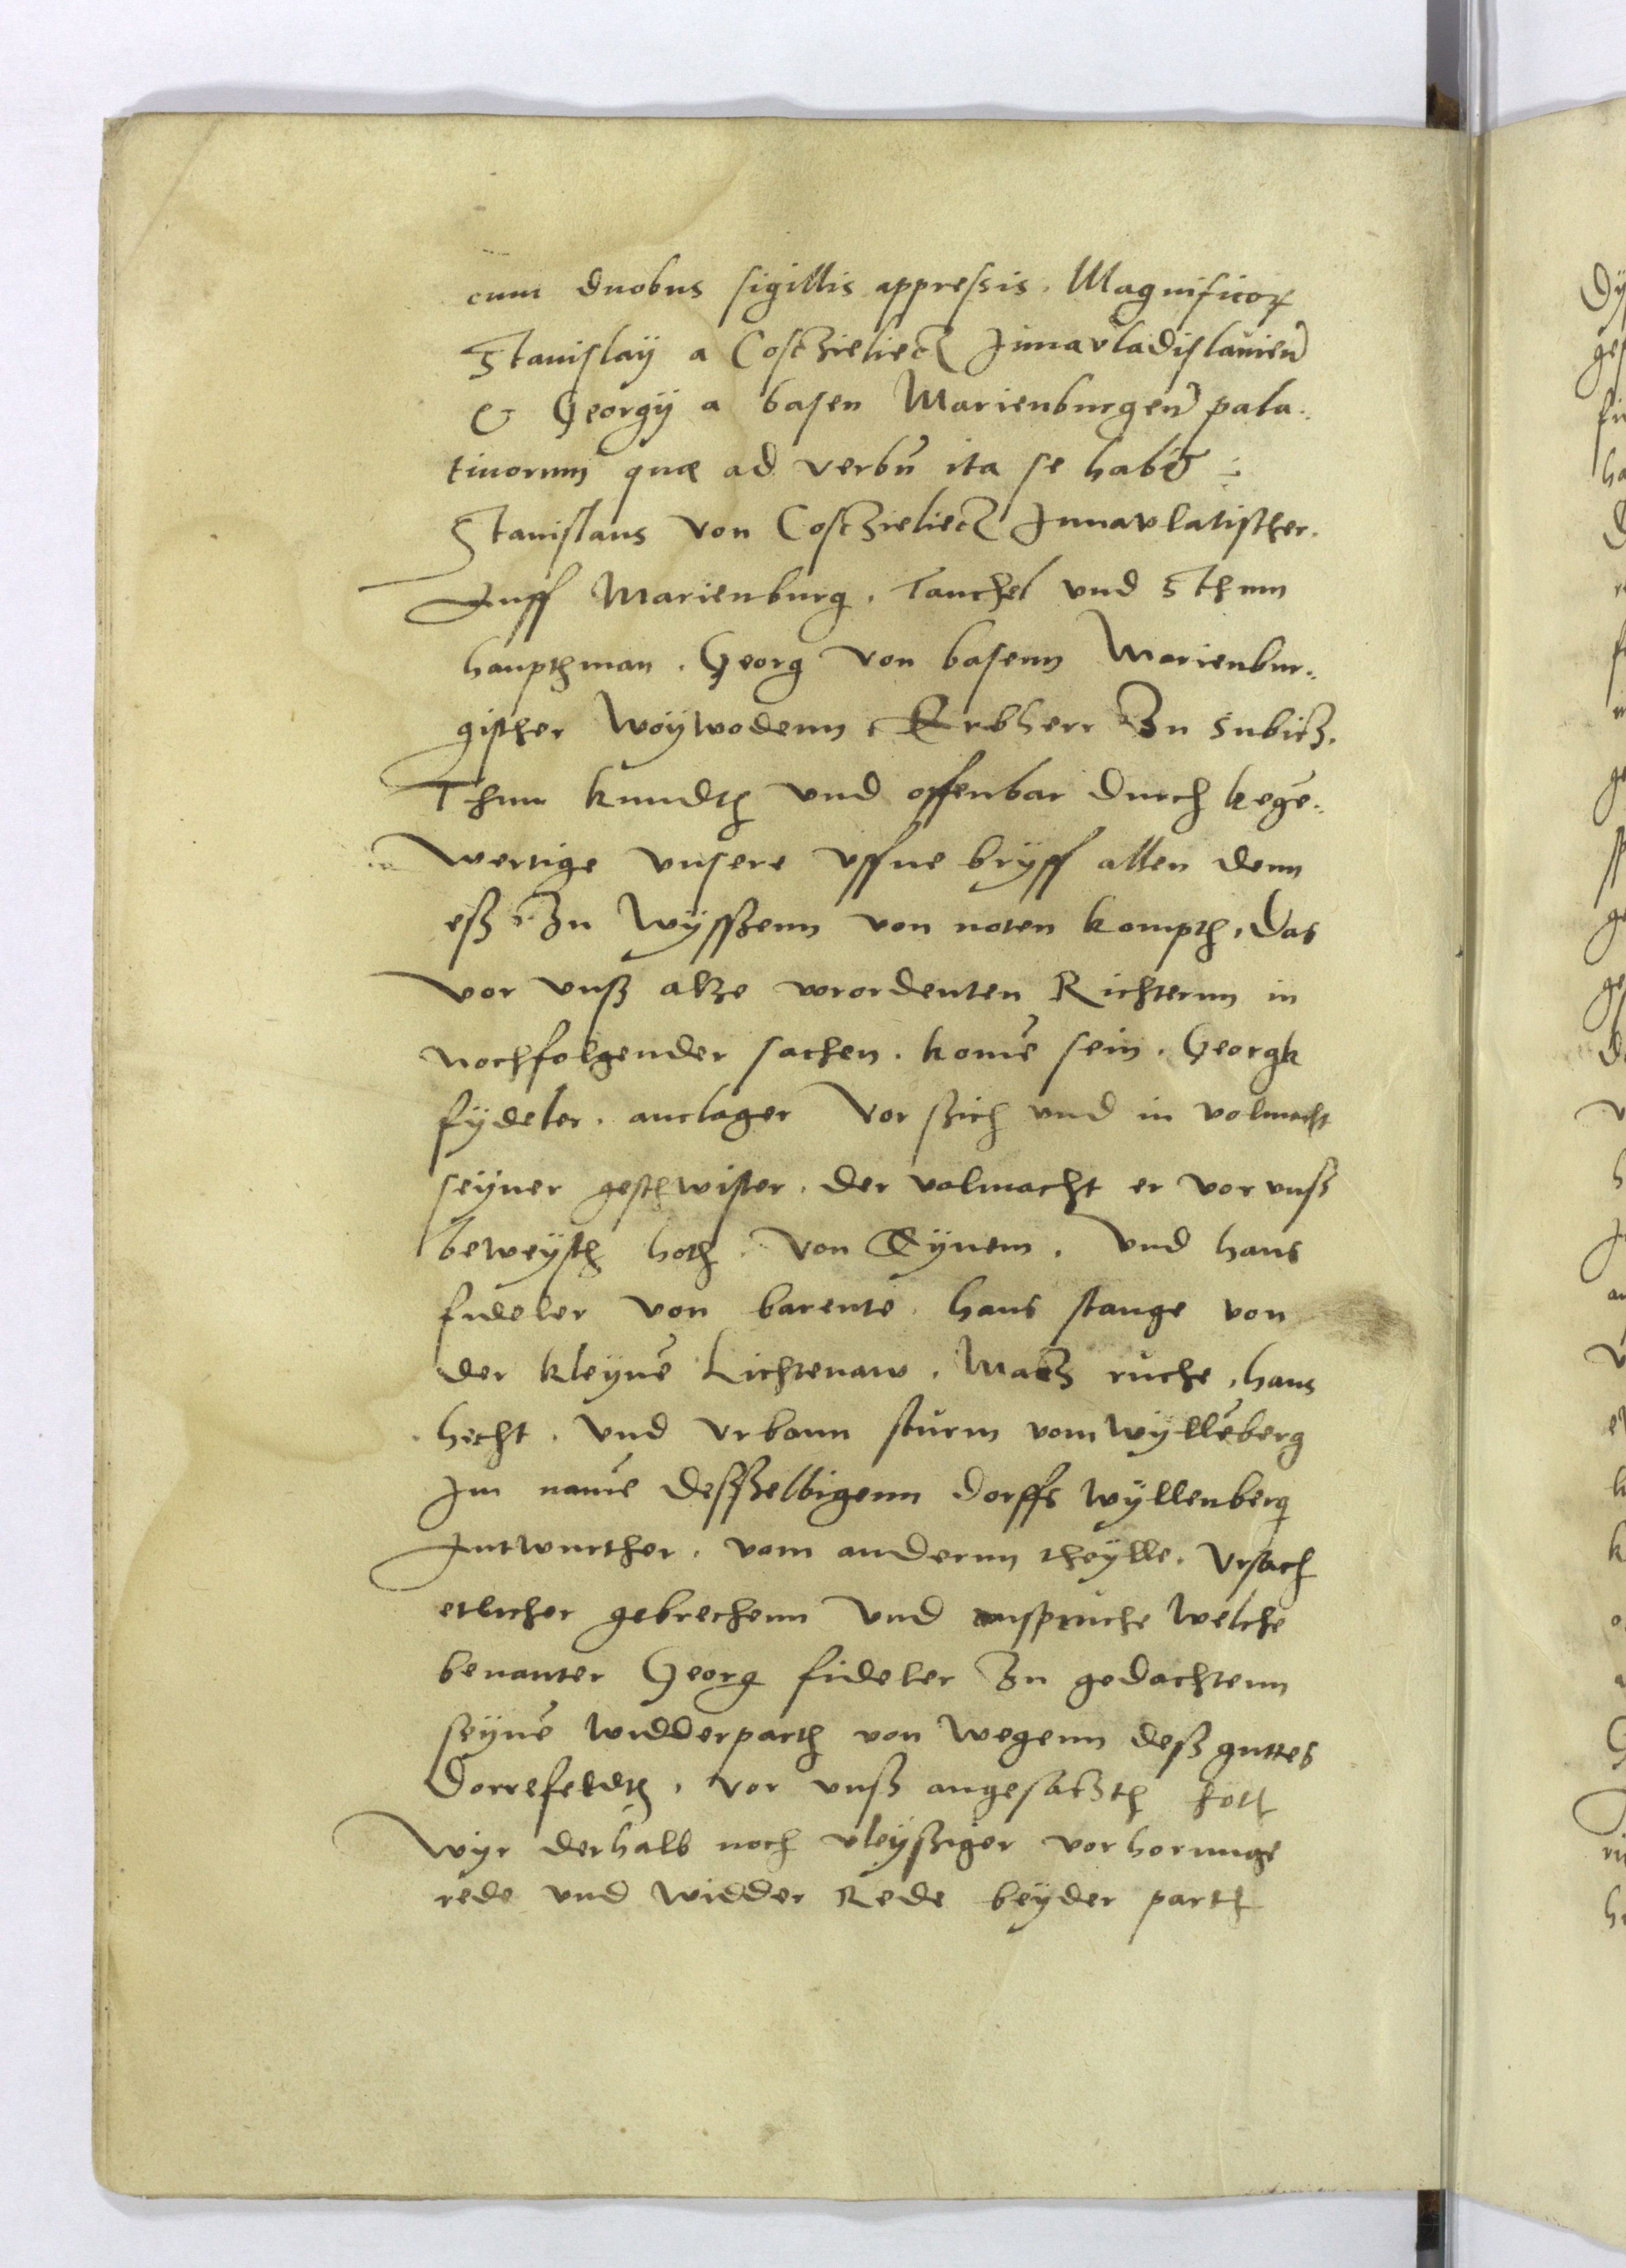 cum duobus sigillis appressis. Magnificoꝝ
Stanislaÿ a Cosczieliecz Junavladislauien̄
& Georgÿ a basen Marienburgen̄ pala:
tinorum quæ ad verbū ita se habēt:
Stanislaus von Cosczieliecz Junavlatischer.
Auff Marienburg. Tauchel vnd Sthum
haupthman. Georg von basenn Marienbur:
gischer Woÿwodenn, Erbherr Zu Subicz.
Thun kundth vnd offenbar durch kegē:
wertige vnsere vffne brÿff allen denn
eß Zu wÿssenn von noten kompth, das
vor vnß alße vorordenten Richternn in
nochfolgender sachen. komē sein. Georgk
fÿdeler. anclager vor ßich vnd in volmacht
seÿner geschwister. der volmacht er vor vnß
beweÿsth hoth. von Eÿnem. vnd hans
fideler von barente. hans stange von
der kleÿnē Lichtenaw. Macz ruche, hans
hecht. vnd vrbann sturm vom wÿllēberg
Im namē desßelbigenn dorffs wÿllenberg
Antwurther. vom andernn theÿlle. vrsach
etlicher gebrechenn vnd anspruche welche
benanter Georg fideler Zu gedachtenn
seÿnē widderparth von wegenn deß guttes
Dorrefeldth. vor vnß angesatzth hoth
wÿr derhalb noch vleÿßiger vorhorunge
rede vnd widder Rede beÿder parth